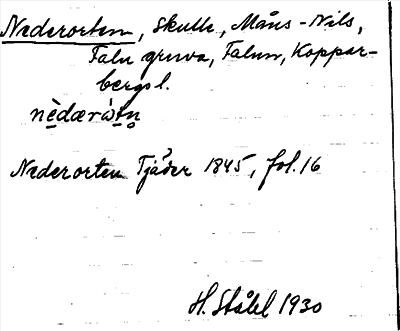 Nederorten, Skulle, Måns-Nils,
Falu gruva, Falun, Koppar-
bergs l.
nèdæràtn̥
Nederorten Tjäder 1845, fol. 16
H. Ståhl 1930